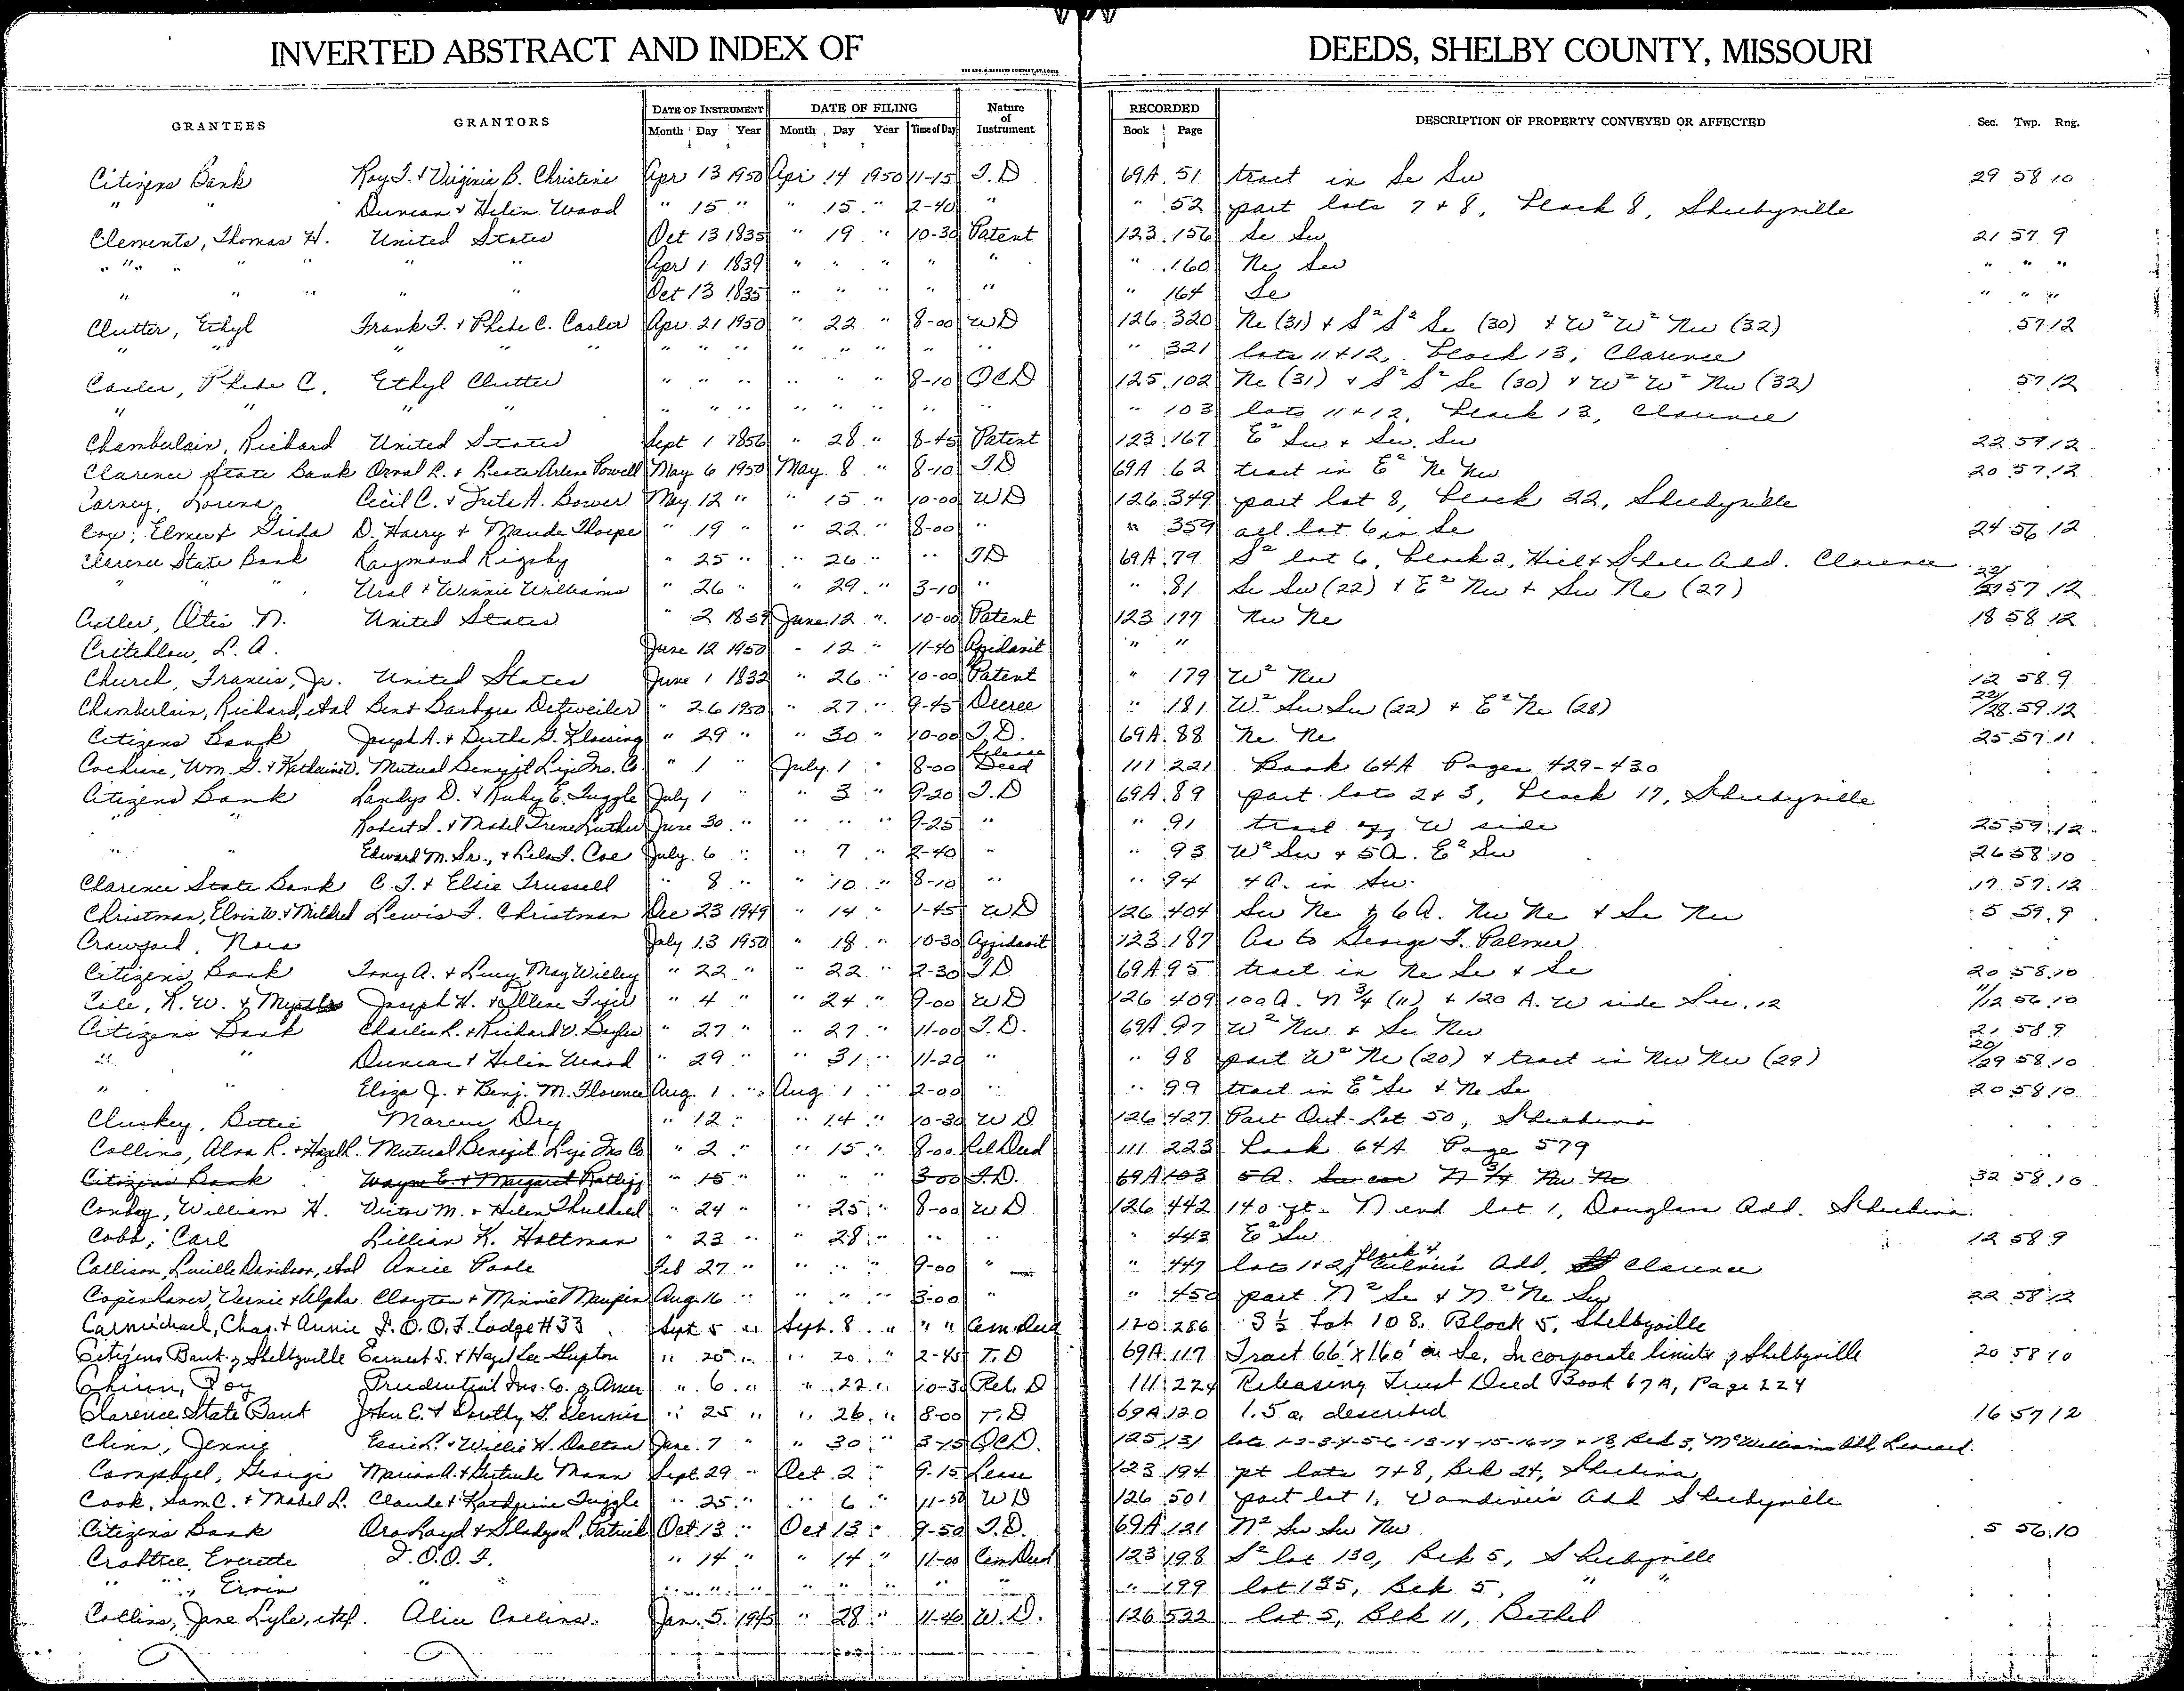 INVERTED ABSTRACT AND INDEX OF DEEDS, SHELBY COUNTY, MISSOURI
GRANTEES GRANTORS DATE OF INSTRUMENT DATE OF FILING Nature of Instrument RECORDED DESCRIPTION OF PROPERTY CONVEYED OR AFFECTED Sec. Twp. Rng.
Month Day Year Month Day Year Time of Day Book Page
Citizens Bank Roy T. & Virginia B. Christine Apr 13 1950 Apr 14 1950 11-15 T.D 69A 51 tract in Se Sw 29 58 10
" " Duncan & Helen Wood " 15 " " 15 " 2-40 " " 52 part lots 7 & 8, Block 8, Shelbyville
Clements, Thomas H. United States Oct 13 1835 " 19 " 10-30 Patent 123 156 Se Sw 21 57 9
" " " " " " Apr 1 1839 " " " " " " 160 Ne Sw " " "
" " " " " Oct 13 1835 " " " " " " 164 Se " " "
Clutter, Ethyl Frank F. & Phebe C. Casler Apr 21 1950 " 22 " 8-00 WD 126 320 Ne (31) & S² S² Se (30) & W² W² Nw (32) 57 12
" " " " " " " " " " " " " " 321 lots 11 & 12, Block 13, Clarence
Casler, Phebe C. Ethyl Clutter " " " " " " 8-10 QCD 125 102 Ne (31) & S² S² Se (30) & W² W² Nw (32) 57 12
" " " " " " " " " " " " " 103 lots 11 & 12, Block 13, Clarence
Chamberlain, Richard United States Sept 1 1856 " 28 " 8-45 Patent 123 167 E² Sw & Sw Sw 22 59 12
Clarence State Bank Orval L. & Leota Arlene Powell May 6 1950 May 8 " 8-10 TD 69A 62 tract in E² Ne Nw 20 57 12
Carney, Lorena Cecil C. & Freta A. Bower May 12 " " 15 " 10-00 WD 126 349 part lot 8, Block 22, Shelbyville
Cox, Elmer & Guida D. Harry & Maude Thorpe " 19 " " 22 " 8-00 " " 359 all lot 6 in Se 24 56 12
Clarence State Bank Raymond Rigsby " 25 " " 26 " " TD 69A 79 S² lot 6, Block 2, Hill & Add. Clarence
" " " Ural & Winnie Williams " 26 " " 29 " 3-10 " " 81 Se Sw (22) & E² Nw & Sw Ne (27) 22/27 57 12
Otis N. United States " 2 1859 June 12 " 10-00 Patent 123 177 Nw Ne 18 58 12
Critchlow, L. A. June 12 1950 " 12 " 11-40 Affidavit " "
Church, Francis, Jr. United States June 1 1832 " 26 " 10-00 Patent " 179 W² Nw 12 58 9
Chamberlain, Richard, etal Ben & Barbara Detweiler " 26 1950 " 27 " 9-45 Decree " 181 W² Sw Sw (22) & E² Ne (28) 22/28 59 12
Citizens Bank Joseph A. & Bertha G. Klossing " 29 " " 30 " 10-00 T.D. 69A 88 Ne Ne 25 57 11
Cochrane, Wm. G. & Katherine O. Mutual Benefit Life Ins. Co. " 1 " July 1 " 8-00 Release Deed 111 221 Book 64A Pages 429-430
Citizens Bank Landys D. & Ruby E. Tuggle July 1 " " 3 " 9-20 T.D 69A 89 part lots 2 & 3, Block 17, Shelbyville
" " Robert S. & Mabel Irene Luther June 30 " " " " 9-25 " " 91 tract off W side 25 59 12
" " Edward M. Sr., & Lela I. Coe July 6 " " 7 " 2-40 " " 93 W² Sw & 5A. E² Sw 26 58 10
Clarence State Bank C. T. & Elsie Trussell " 8 " " 10 " 8-10 " " 94 4 A. in Sw 17 57 12
Christman, Elvin W. & Mildred Lewis F. Christman Dec 23 1949 " 14 " 1-45 WD 126 404 Sw Ne & 6 A. Nw Ne & Se Nw 5 59 9
Crawford, Nora July 13 1950 " 18 " 10-30 Affidavit 123 187 As to George F. Palmer
Citizens Bank Tony A. & Lucy May Willey " 22 " " 22 " 2-30 TD 69A 95 tract in Ne Se & Se 20 58 10
Cole, K. W. & Myrtle Joseph H. & Ollene " 4 " " 24 " 9-00 WD 126 409 100 A. N ¾ (11) & 120 A. W side Sec. 12 11/12 56 10
Citizens Bank Charles R. & Richard V. " 27 " " 27 " 11-00 T.D. 69A 97 W² Nw & Se Nw 21 58 9
" " Duncan & Helen Wood " 29 " " 31 " 11-20 " " 98 part W² Ne (20) & tract in Nw Nw (29) 20/29 58 10
" " Eliza J. & Benj. M. Florence Aug. 1 " Aug 1 " 2-00 " " 99 tract in E² Se & Ne Se 20 58 10
Cluskey, Bettie Marcus Dry " 12 " " 14 " 10-30 WD 126 427 Part Out-Lot 50, Shelbina
Collins, Alva R. & Hazel R. Mutual Benefit Life Ins Co " 2 " " 15 " 8-00 Rel Deed 111 223 Book 64A Page 579
Citizens Bank Wayne E. & Margaret Ratliff " 15 " " " " 3-00 T.D. 69A 103 5 A. Sw cor N ¾ Nw Ne 32 58 10
William H. Victor M. & Helen " 24 " " 25 " 8-00 WD 126 442 140 ft. N end lot 1, Douglass Add. Shelbina
Cobb, Carl Lillian K. Holtman " 23 " " 28 " " " " 443 E² Sw 12 58 9
Callison, Lucille Davidson, etal Anice Poole Feb 27 " " " " 9-00 " " 447 lots 1 & 2, Block 4, Add. Clarence
Copenhaver, Vernie & Alpha Clayton & Minnie Maupin Aug 16 " " " " 3-00 " " 450 part N² Se & N² Ne Sw 22 58 12
Carmichael, Chas. & Annie I. O. O. F. Lodge #33 Sept 5 " Sept. 8 " " " Cem. Deed 120 286 S ½ Lot 108, Block 5, Shelbyville
Citizens Bank of Shelbyville Earnest S. & Hazel Lee Gupton " 20 " " 20 " 2-45 T.D 69A 117 Tract 66' x 160' in Se, In corporate limits of Shelbyville 20 58 10
Chinn, Roy Prudential Ins. Co. of Amer " 6 " " 22 " 10-30 Rel. D 111 224 Releasing Trust Deed Book 67A, Page 224
Clarence State Bank John E. & Dorothy G. Dennis " 25 " " 26 " 8-00 T.D 69A 120 1.5 a. described 16 57 12
Chinn, Jennie Essie L. & Willie H. Dalton June 7 " " 30 " 3-15 QCD. 125 131 lots 1-2-3-4-5-6-13-14-15-16-17 & 18, Blk 3, McWilliams Add. Leonard
Campbell, George Marion A. & Gertrude Mann Sept. 29 " Oct. 2 " 9-15 Lease 123 194 pt lots 7 & 8, Blk 24, Shelbina
Cook, Sam C. & Mabel L. Claude & Katherine Tuggle " 25 " " 6 " 11-50 WD 126 501 part lot 1, Vandiver's Add Shelbyville
Citizens Bank Ora Loyd & Gladys L. Patrick Oct 13 " Oct 13 " 9-50 T.D. 69A 121 N² Sw Sw Nw 5 56 10
Crabtree, Everette I. O. O. F. " 14 " " 14 " 11-00 Cem Deed 123 198 S² lot 130, Blk 5, Shelbyville
" ", Ervin " " " " " " " " " " 199 lot 135, Blk 5, " "
Collins, Jane Lyle, etal. Alice Collins Jan. 5 1945 " 28 " 11-40 W.D. 126 522 lot 5, Blk 11, Bethel